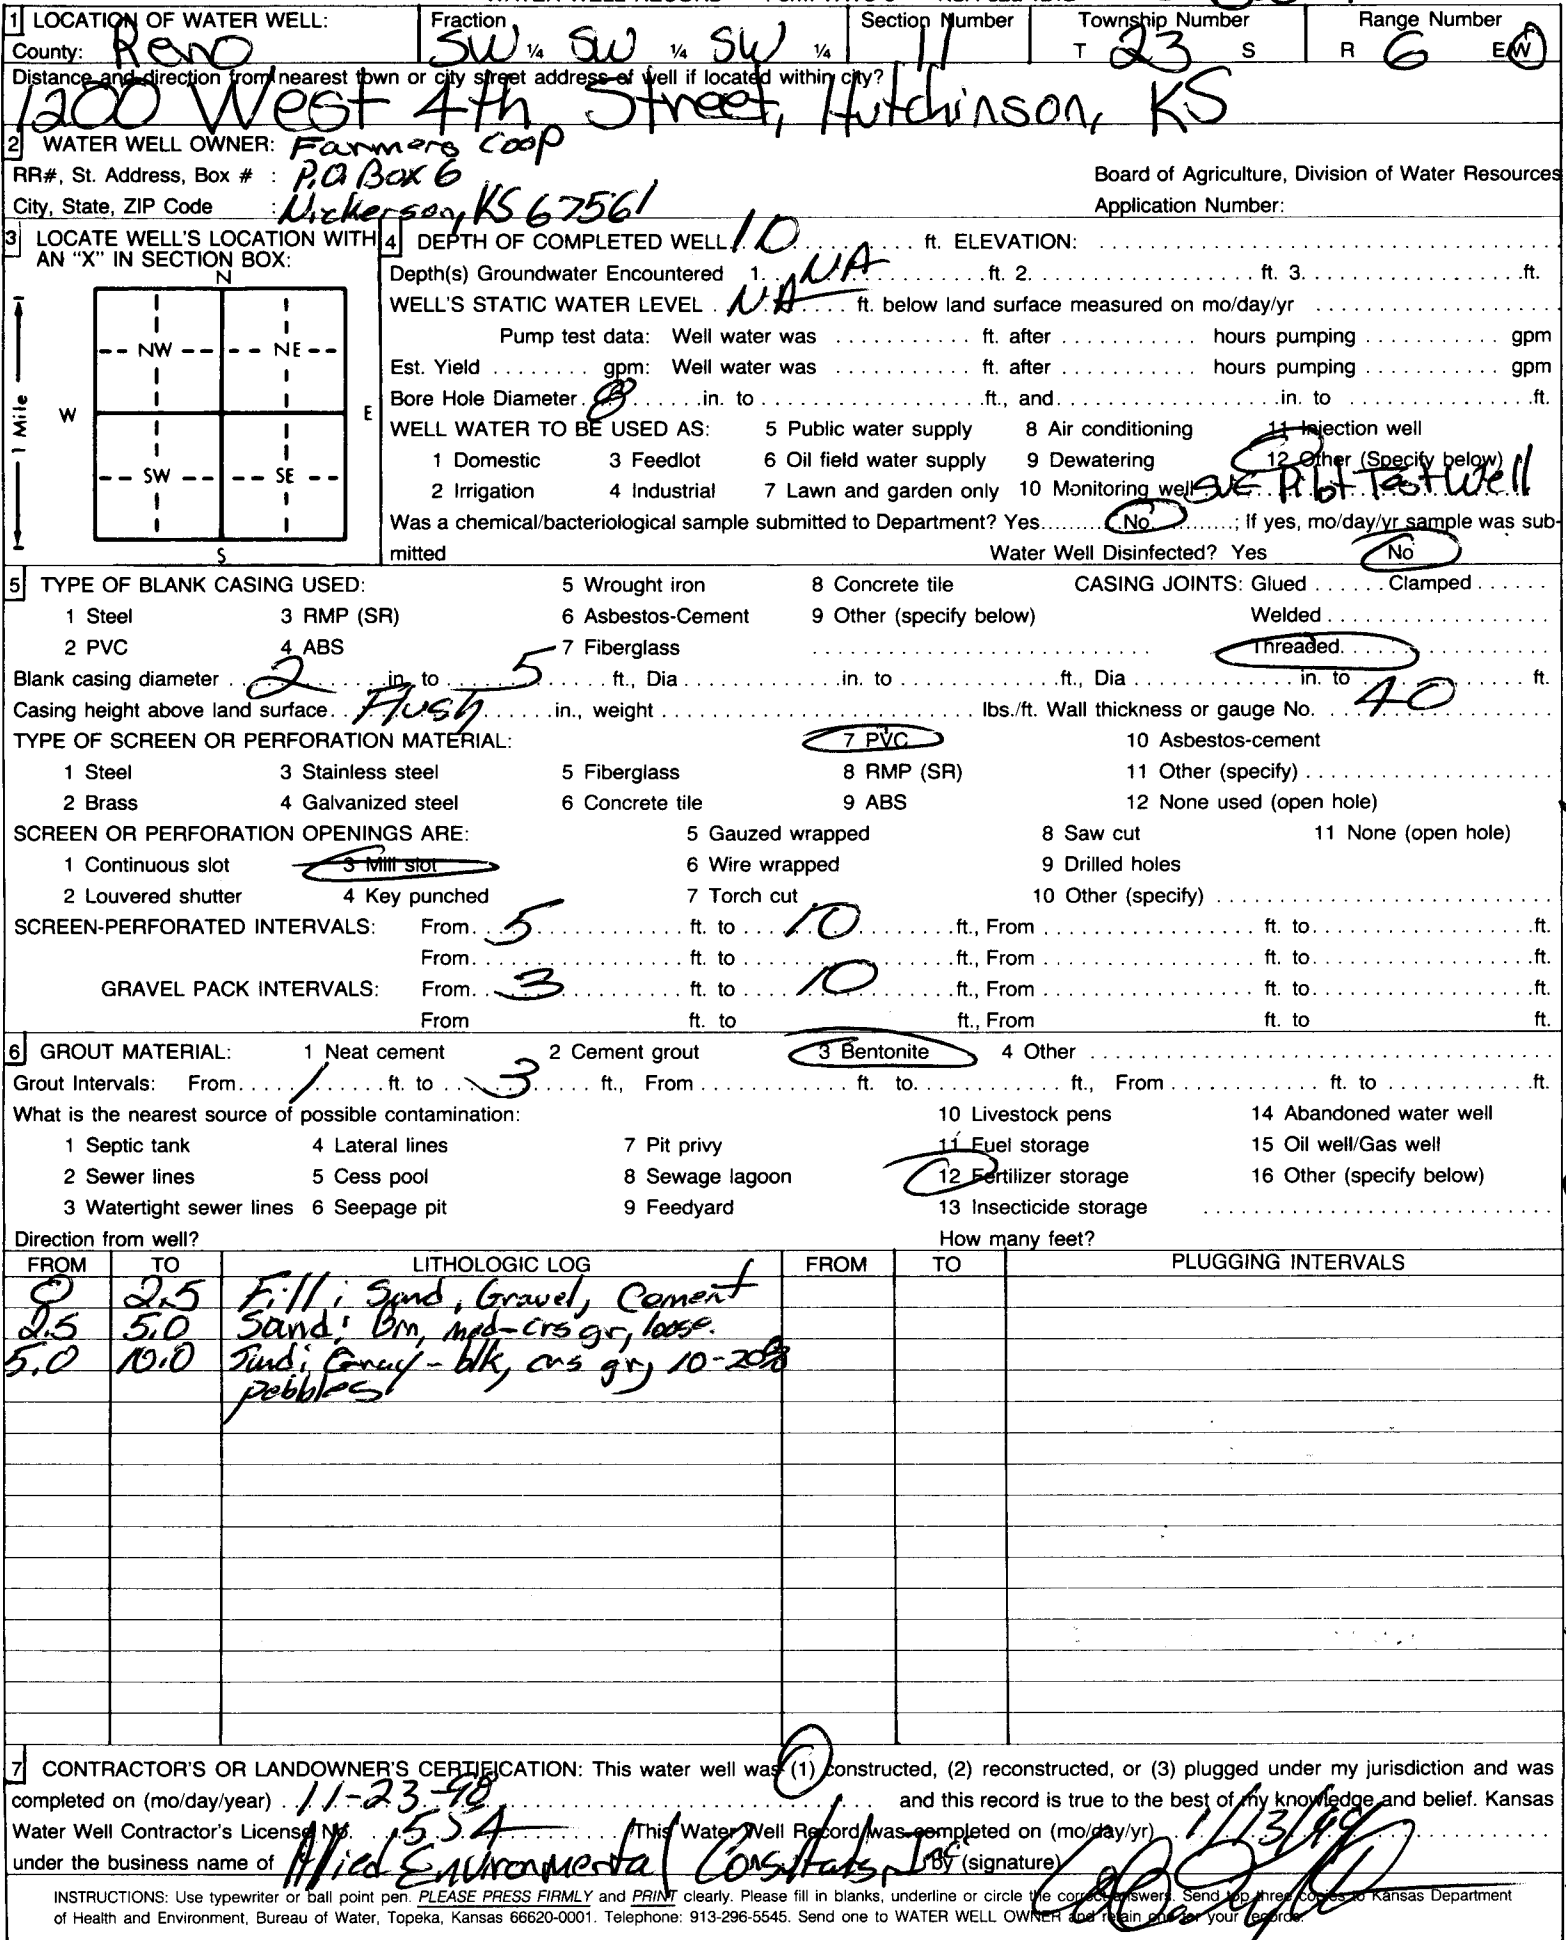 1 LOCATION OF WATER WELL: Fraction Section Number Township Number Range Number
County: Reno SW ¼ SW ¼ SW ¼ 11 T 23 S R 6 E W
Distance and direction from nearest town or city street address of well if located within city?
1200 West 4th Street, Hutchinson, KS
2 WATER WELL OWNER: Farmers Coop
RR#, St. Address, Box # : P.O Box 6 Board of Agriculture, Division of Water Resources
City, State, ZIP Code : Nickerson, KS 67561 Application Number:
3 LOCATE WELL'S LOCATION WITH AN "X" IN SECTION BOX:
N
NW NE
W E
SW SE
S
1 Mile
4 DEPTH OF COMPLETED WELL 10 ft. ELEVATION:
Depth(s) Groundwater Encountered 1. NA ft. 2. ft. 3. ft.
WELL'S STATIC WATER LEVEL NA ft. below land surface measured on mo/day/yr
Pump test data: Well water was ft. after hours pumping gpm
Est. Yield gpm: Well water was ft. after hours pumping gpm
Bore Hole Diameter 8 in. to ft., and in. to ft.
WELL WATER TO BE USED AS: 5 Public water supply 8 Air conditioning 11 Injection well
1 Domestic 3 Feedlot 6 Oil field water supply 9 Dewatering 12 Other (Specify below)
2 Irrigation 4 Industrial 7 Lawn and garden only 10 Monitoring well SVE Pilot Test Well
Was a chemical/bacteriological sample submitted to Department? Yes No ; If yes, mo/day/yr sample was sub-
mitted Water Well Disinfected? Yes No
5 TYPE OF BLANK CASING USED: 5 Wrought iron 8 Concrete tile CASING JOINTS: Glued Clamped
1 Steel 3 RMP (SR) 6 Asbestos-Cement 9 Other (specify below) Welded
2 PVC 4 ABS 7 Fiberglass Threaded
Blank casing diameter 2 in. to 5 ft., Dia in. to ft., Dia in. to ft.
Casing height above land surface Flush in., weight lbs./ft. Wall thickness or gauge No. 40
TYPE OF SCREEN OR PERFORATION MATERIAL: 7 PVC 10 Asbestos-cement
1 Steel 3 Stainless steel 5 Fiberglass 8 RMP (SR) 11 Other (specify)
2 Brass 4 Galvanized steel 6 Concrete tile 9 ABS 12 None used (open hole)
SCREEN OR PERFORATION OPENINGS ARE: 5 Gauzed wrapped 8 Saw cut 11 None (open hole)
1 Continuous slot 3 Mill slot 6 Wire wrapped 9 Drilled holes
2 Louvered shutter 4 Key punched 7 Torch cut 10 Other (specify)
SCREEN-PERFORATED INTERVALS: From 5 ft. to 10 ft., From ft. to ft.
From ft. to ft., From ft. to ft.
GRAVEL PACK INTERVALS: From 3 ft. to 10 ft., From ft. to ft.
From ft. to ft., From ft. to ft.
6 GROUT MATERIAL: 1 Neat cement 2 Cement grout 3 Bentonite 4 Other
Grout Intervals: From 1 ft. to 3 ft., From ft. to ft., From ft. to ft.
What is the nearest source of possible contamination: 10 Livestock pens 14 Abandoned water well
1 Septic tank 4 Lateral lines 7 Pit privy 11 Fuel storage 15 Oil well/Gas well
2 Sewer lines 5 Cess pool 8 Sewage lagoon 12 Fertilizer storage 16 Other (specify below)
3 Watertight sewer lines 6 Seepage pit 9 Feedyard 13 Insecticide storage
Direction from well? How many feet?
FROM TO LITHOLOGIC LOG FROM TO PLUGGING INTERVALS
0 2.5 Fill; Sand, Gravel, Cement
2.5 5.0 Sand; Brn, med-crs gr, loose.
5.0 10.0 Sand; Gray-blk, crs gr, 10-20%
pebbles
7 CONTRACTOR'S OR LANDOWNER'S CERTIFICATION: This water well was (1) constructed, (2) reconstructed, or (3) plugged under my jurisdiction and was
completed on (mo/day/year) 11-23-98 and this record is true to the best of my knowledge and belief. Kansas
Water Well Contractor's License No. 554 This Water Well Record was completed on (mo/day/yr) 1/13/99
under the business name of Allied Environmental Consultants, Inc by (signature)
INSTRUCTIONS: Use typewriter or ball point pen. PLEASE PRESS FIRMLY and PRINT clearly. Please fill in blanks, underline or circle the correct answers. Send top three copies to Kansas Department
of Health and Environment, Bureau of Water, Topeka, Kansas 66620-0001. Telephone: 913-296-5545. Send one to WATER WELL OWNER and retain one for your records.